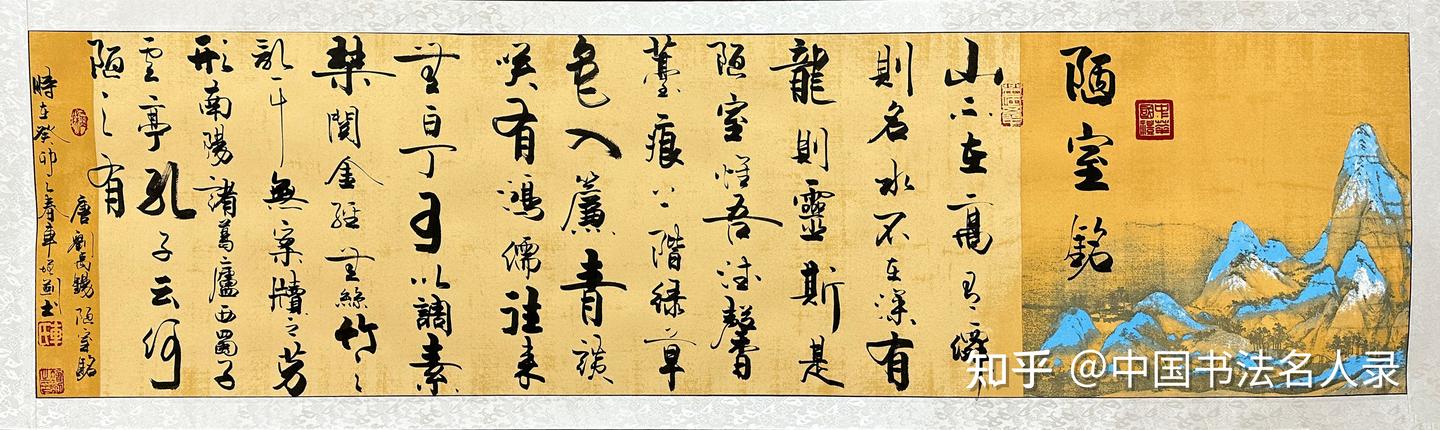 陋室銘
山不在高有僊
則名水不在深有
龍則靈斯是
陋室惟吾德馨
薹痕上階緑草
色入簾青談
笑有鴻儒往來
無白丁可以調素
琴閲金經無絲竹之
亂耳無案牘之劳
形南陽諸葛廬西蜀子
雲亭孔子云何
陋之有
唐劉禹錫陋室銘
時在癸卯之春車
知乎 @中国书法名人录